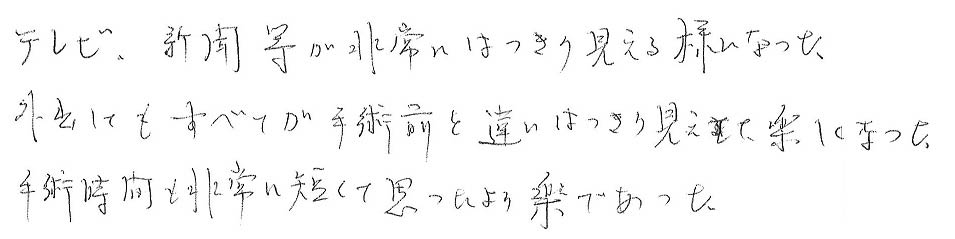 テレビ、新聞等が非常にはっきり見える様になった
外出してもすべてが手術前と違いはっきり見えて楽になった
手術時間も非常に短くて思ったより楽であった